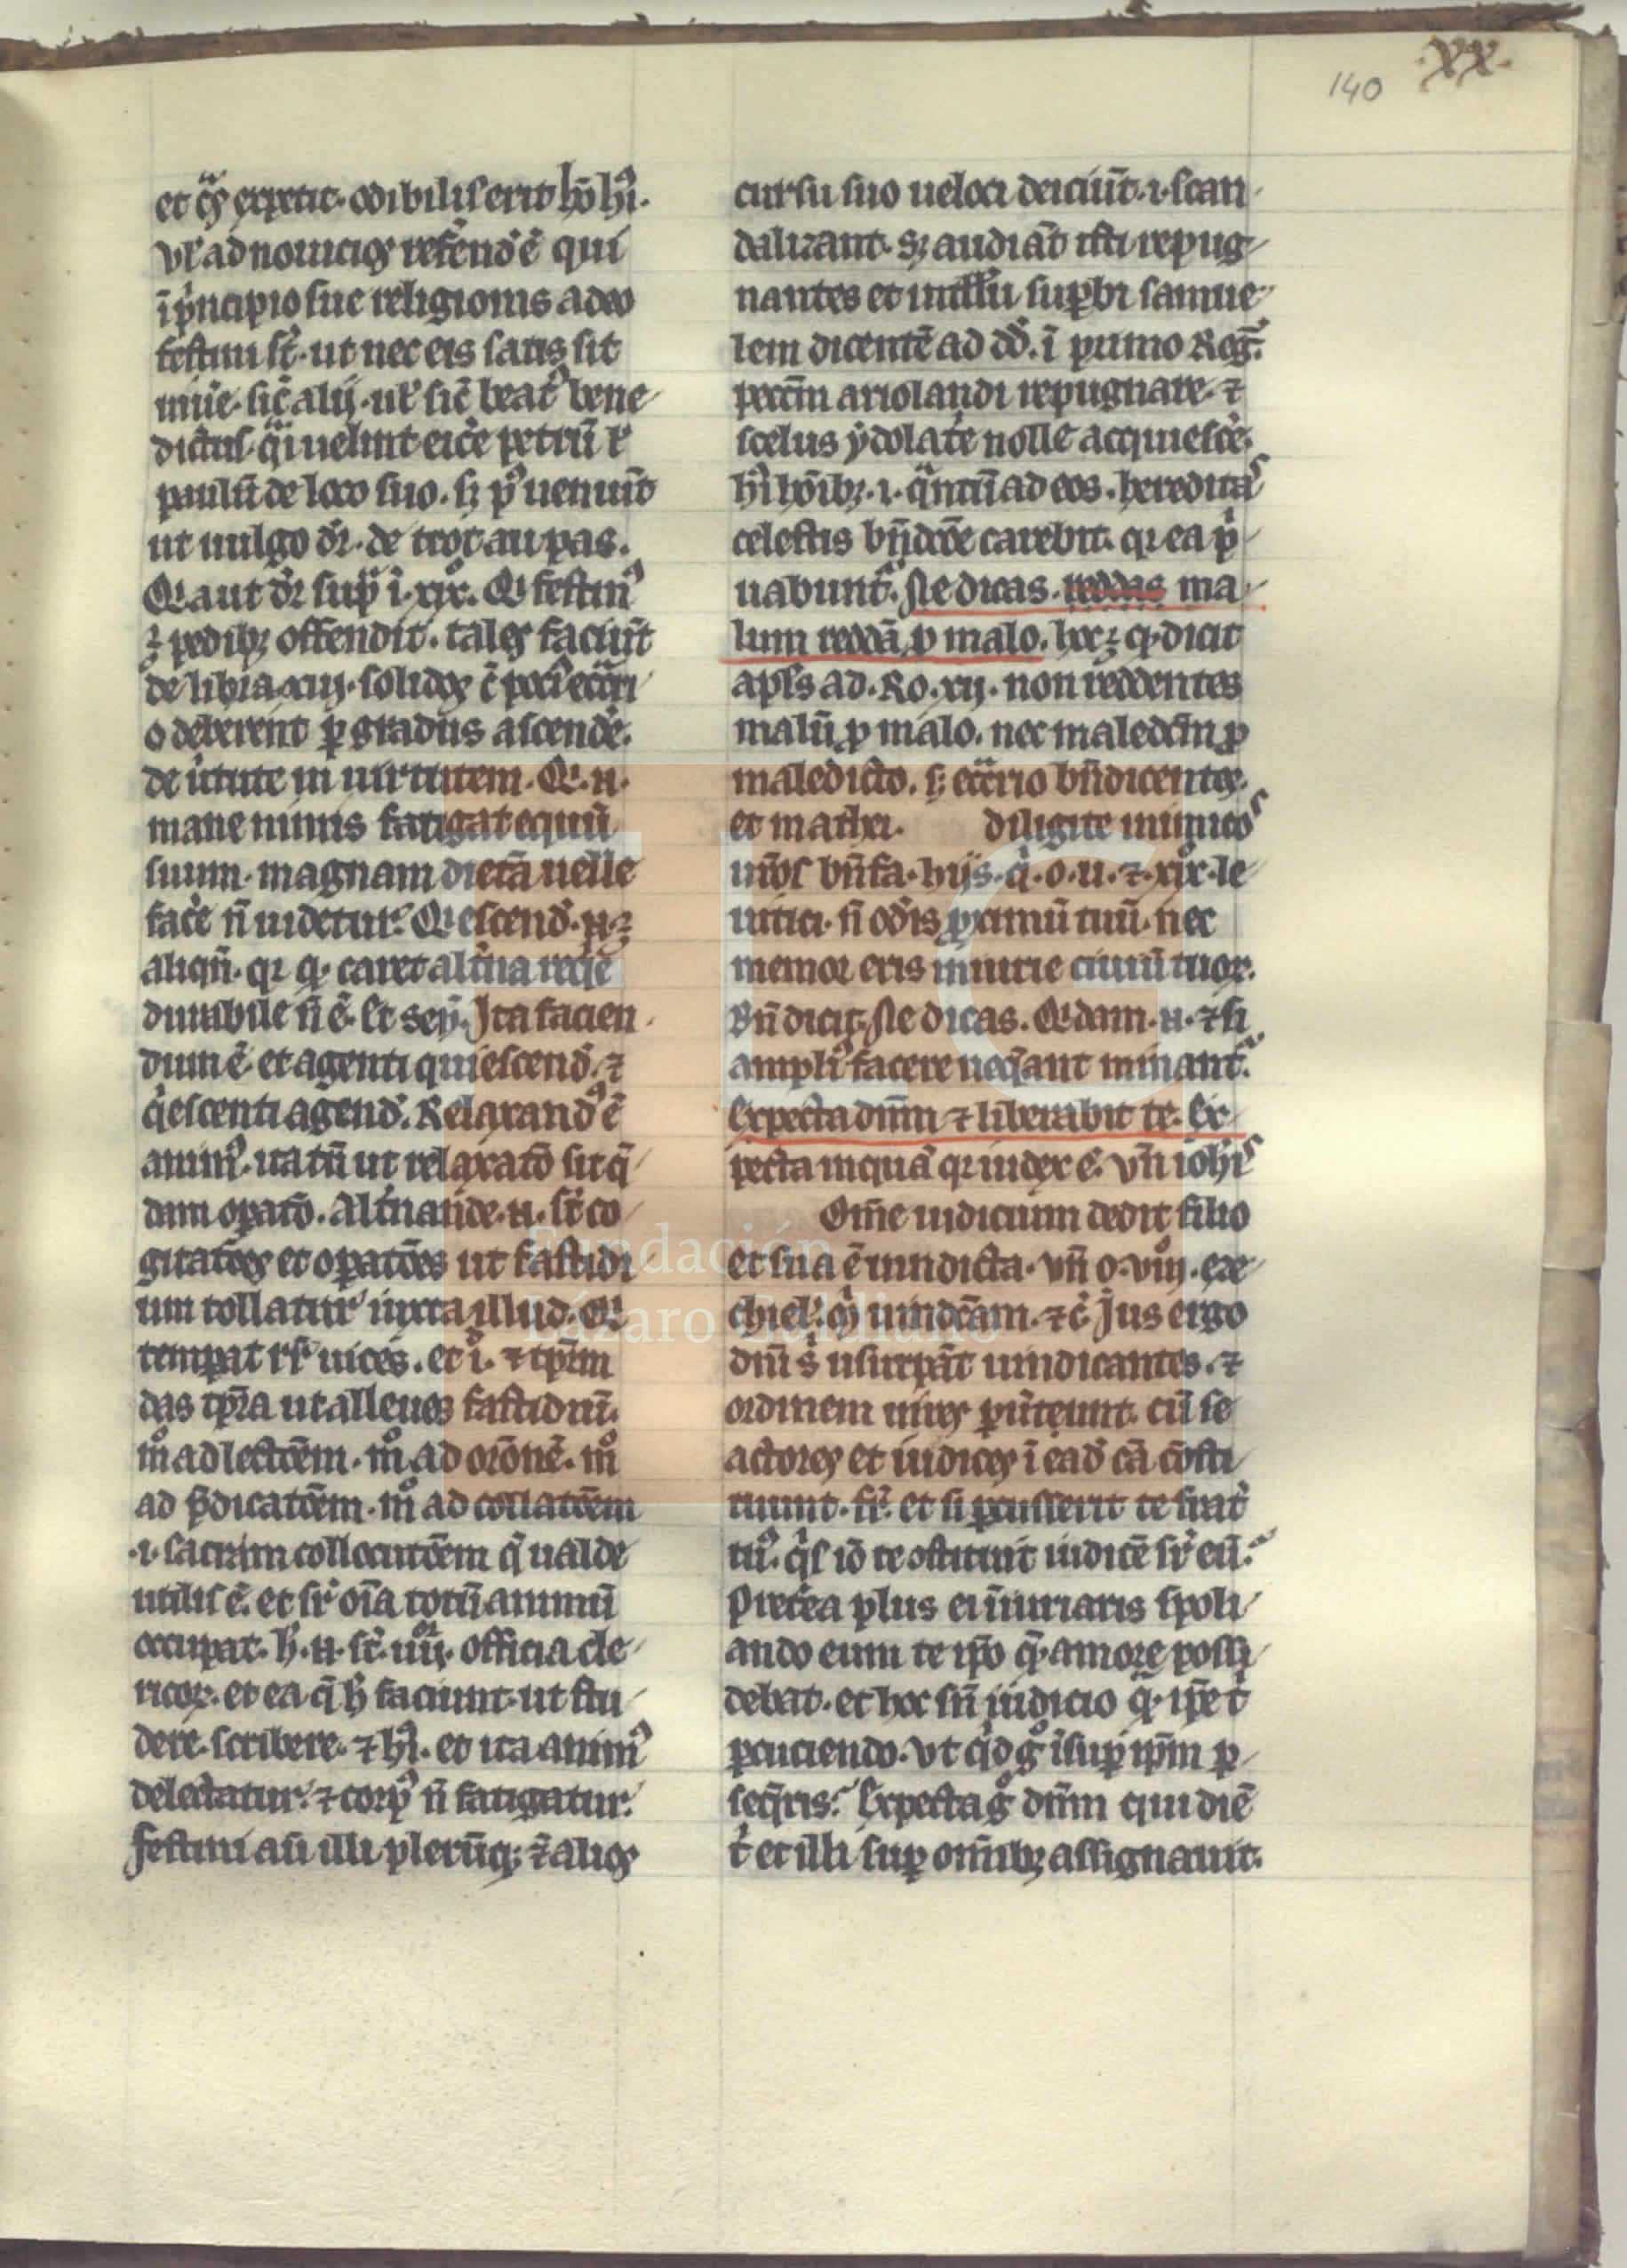 140 .xx.
et q̄s expetit. odibilis erit hō hi9.
Vl' ad nouicios refend9 ē qui
ī pͥncipio sue religionis adeo
festini st̄. ut nec eis satis sit
uiue. sic̄ alij. ul' sic̄ beat9 bene
dictus. qͥ uelint eice petrū l'
paulū de loco suo. sꝫ p9 uenīut
ut uulgo dr̄. de trot au pas.
Q aut dr̄ supͣ i. xix. Q festin9
ē pedibꝫ offendit. tales faciūt
de libra xiij. solidos
o deberent ꝑ gradus ascende.
de ūtute in uirtutem. Q. n.
mane nimis fatigat equū
suum. magnam dietā uelle
face n̄ uidetur. Qͥescend9. n. ē
aliqn̄. qꝛ qͦ caret alt̄na reqͥe
durabile n̄ ē. Et Seņ. Ita facien
dum ē. et agenti quiescend9. ⁊
qͥescenti agend9. Relaxand9 ē
anim9. uatū ut relaxatō sit q̄
dam opatō. Alt̄nande. n. st̄ co
gitatōes et opatōes ut fastidi
um tollatur iuxta illud. Qͥ
temperat r̄r uices. et i. ⁊ tp̄rm
das tp̄ra ut alleues fastidiū.
mͦ ad lectōem. mͦ ad orōne. mͦ
ad p̄dicatōem. mͦ ad collatōem
.i. sacram collocutōem qͤ ualde
utilis ē. et sr̄ oīa totū animū
occupat. h̄. n. st̄. iiijͦʳ. officia cle
ricoꝝ. et ea q̄ h̄ faciunt. ut stu
dere. scribere. ⁊ hi9. et ita anim9
delectatur. ⁊ corp9 n̄ fatigatur.
festini aū illi plerūqꝫ ⁊ alios
cursu suo ueloci deiciūt. i. scan
dalizant. Sꝫ audiāt isti repug
nantes et suꝑbi samue
lem dicentē ad dd̄. ī primo Reg.
pecc̄m ariolandi repugnare. ⁊
scelus ydolat̄e nolle acquiesce.
hi9 hōibꝫ. i. qͣntū ad eos. hereditas
celestis bn̄dcōe carebit. qꝛ ea pͥ
uabunt̄. Ne dicas. reddas ma
lum reddā ꝓ malo. hoc ē qͦ dicit
apl's ad. Ro. xij. non reddentes
malū ꝓ malo. nec maledcm̄ ꝓ
maledicto. sꝫ eccͣrio bn̄dicentes.
et mathei. diligite inimicos
uros bn̄fa. hijs. qͥ. o. u. ⁊. xix. le
uitici. n̄ odis ꝓximū tuū. nec
memor eris iniurie ciuiū tuoꝝ.
Bn̄ dicit. Ne dicas. Qͥdam. n. ⁊ si
ampli9 facere neqͣant minant̄.
Expecta dn̄m ⁊ liberabit te. Ex
pecta inquā qꝛ iudex ē. Vn̄ ioh̄is
Om̄e iudicium dedit filio
et sua ē uindicta. Vn̄ o. viij. eze
chiel'. mͥ uindc̄am. ⁊c̄ Jus ergo
dn̄i sͥ usurpāt uindicantes. ⁊
ordinem iuris pͥuertunt. cū se
actores et iudices ī ead9 cā cōsti
tuunt. fr̄. et si pcusserit te frat̄
tu9. qͥs iō te ostituit iudicē sr̄ eū.
Pretea plus ei iniuriaris spoli
ando eum te ip̄o qͦ amore possi
debat. et hoc sn̄ iudicio qͣ ip̄e t
pcuciendo. Vt qͥd gͦ īsuꝑ ip̄m ꝑ
seqͥris. Expecta gͦ dn̄m qui diē
t et illi suꝑ om̄ibꝫ assignauit.
Fundación
Lázaro Galdiano